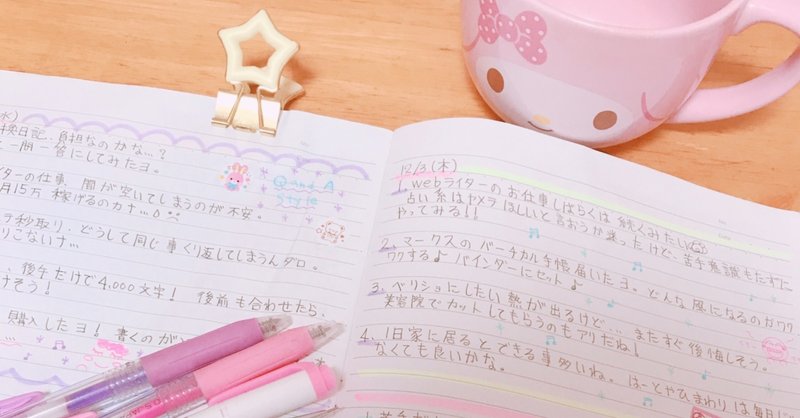 水)
換日記、負担なのかな…?
一問一答にしてみたヨ。
Q and A
Style
イターの仕事、間が空いてしまうのが不安。
月15万 稼げるのカナ…
秒取り、どうして同じ事くり返してしまうんダロ。
りこないナ…
、後半だけで4,000文字! 後前も合わせたら、
けそう!
購入したヨ! 書くのが
12/3(木)
1. webライターのお仕事しばらくは続くみたい
占い系はヤメテほしいと言おうか迷ったけど、苦手意識もたずに
やってみる!!
2. マークスのバーチカル手帳届いたヨ。どんな風になるのかワク
ワクする♪ バインダーにセット♪
3. ベリショにしたい熱が出るけど… またすぐ後悔しそう。
美容院でカットしてもらうのもアリだね!
4. 1日家に居るとできる事多いね。ほーとやひまわりは毎日
なくても良いかな。